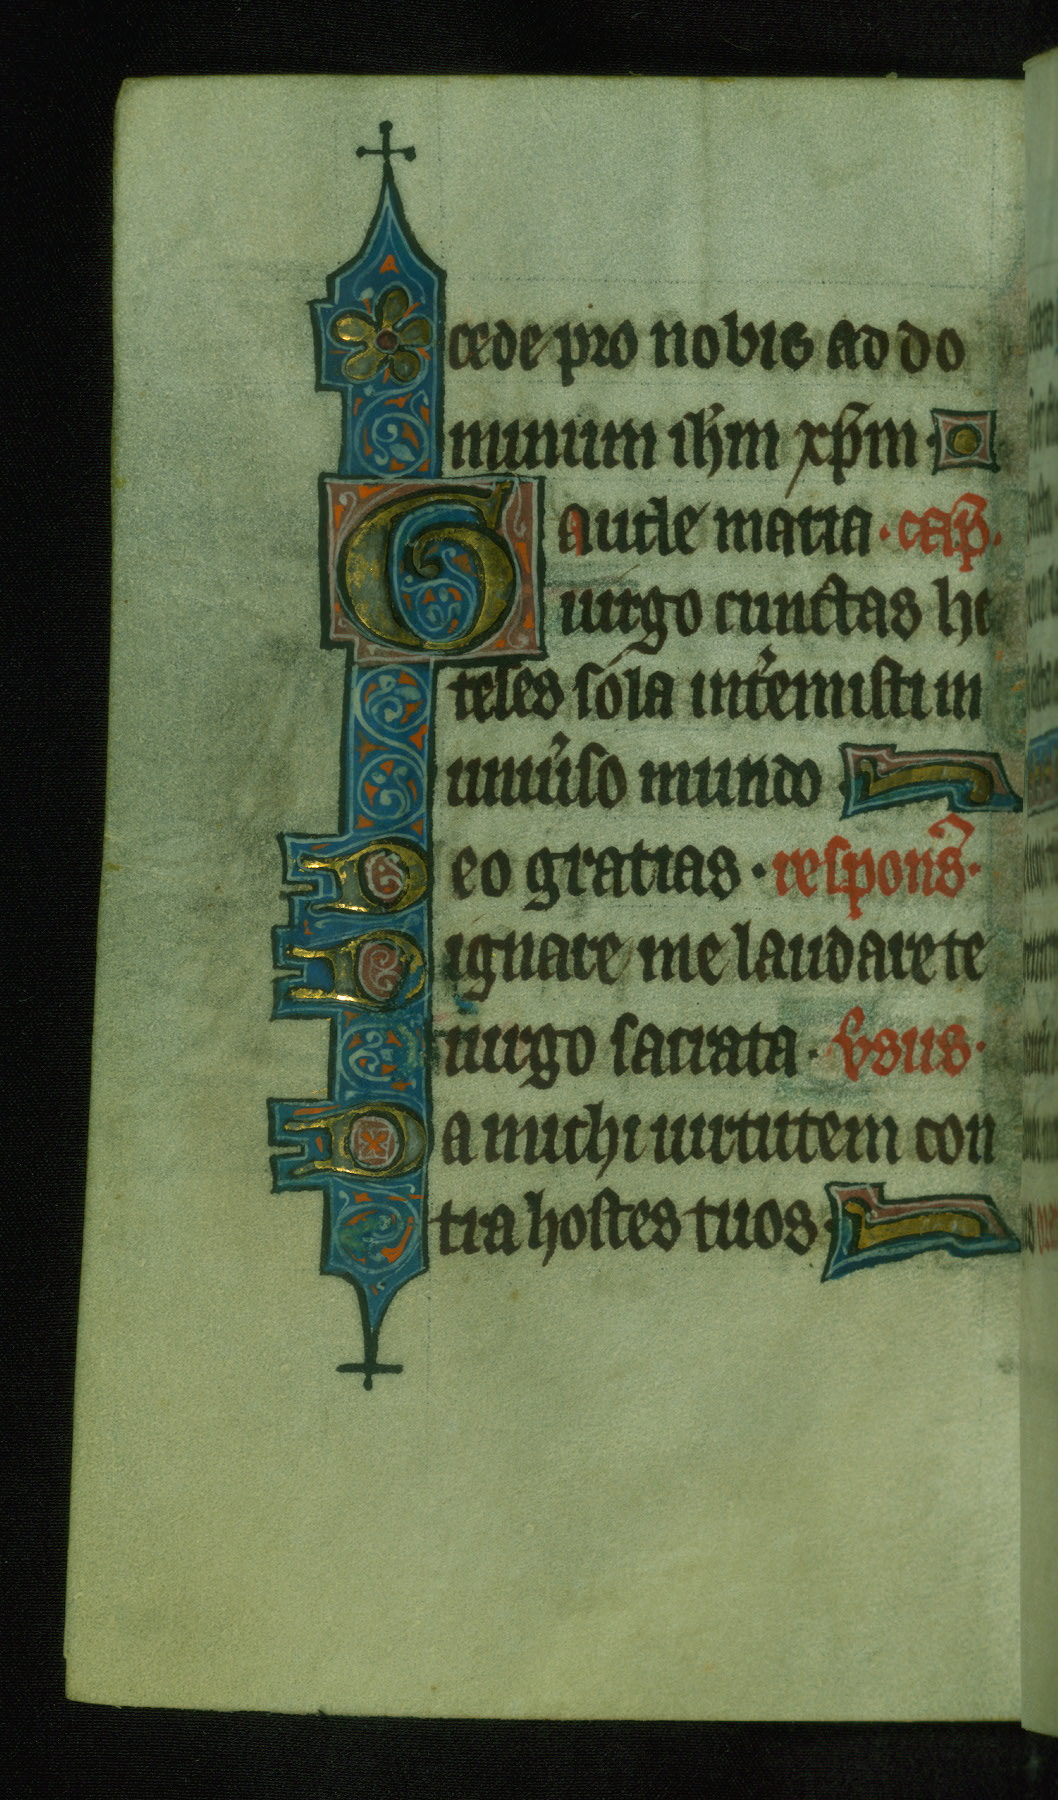 cede pro nobis ad do
minum ih̄m xp̄m
Gaude maria · cap̄ ·
uirgo cunctas he
reses sola int̾emisti in
uniu̾so mundo
Deo gratias · respons̾ ·
Dignare me laudare te
uirgo sacrata · v̾sus ·
Da michi uirtutem con
tra hostes tuos ·